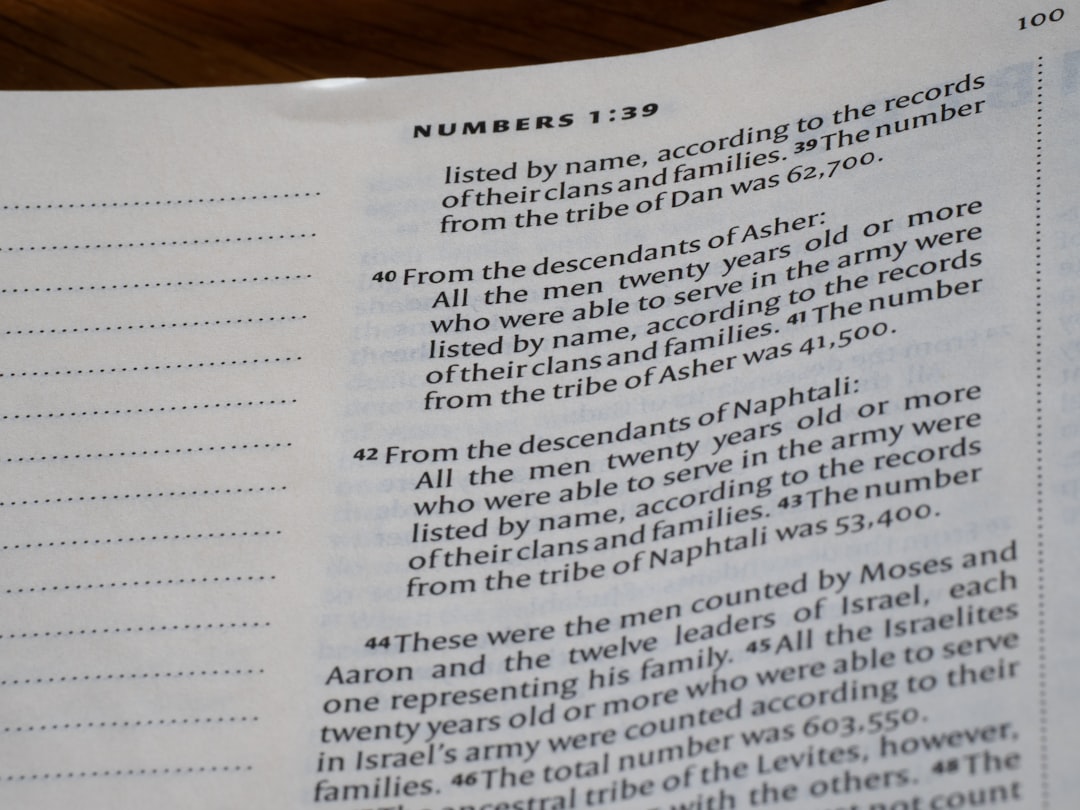 100
NUMBERS 1:39
listed by name, according to the records
of their clans and families. 39 The number
from the tribe of Dan was 62,700.
40 From the descendants of Asher:
All the men twenty years old or more
who were able to serve in the army were
listed by name, according to the records
of their clans and families. 41 The number
from the tribe of Asher was 41,500.
42 From the descendants of Naphtali:
All the men twenty years old or more
who were able to serve in the army were
listed by name, according to the records
of their clans and families. 43 The number
from the tribe of Naphtali was 53,400.
44 These were the men counted by Moses and
Aaron and the twelve leaders of Israel, each
one representing his family. 45 All the Israelites
twenty years old or more who were able to serve
in Israel's army were counted according to their
families. 46 The total number was 603,550.
The ancestral tribe of the Levites, however,
with the others. 48 The
not count